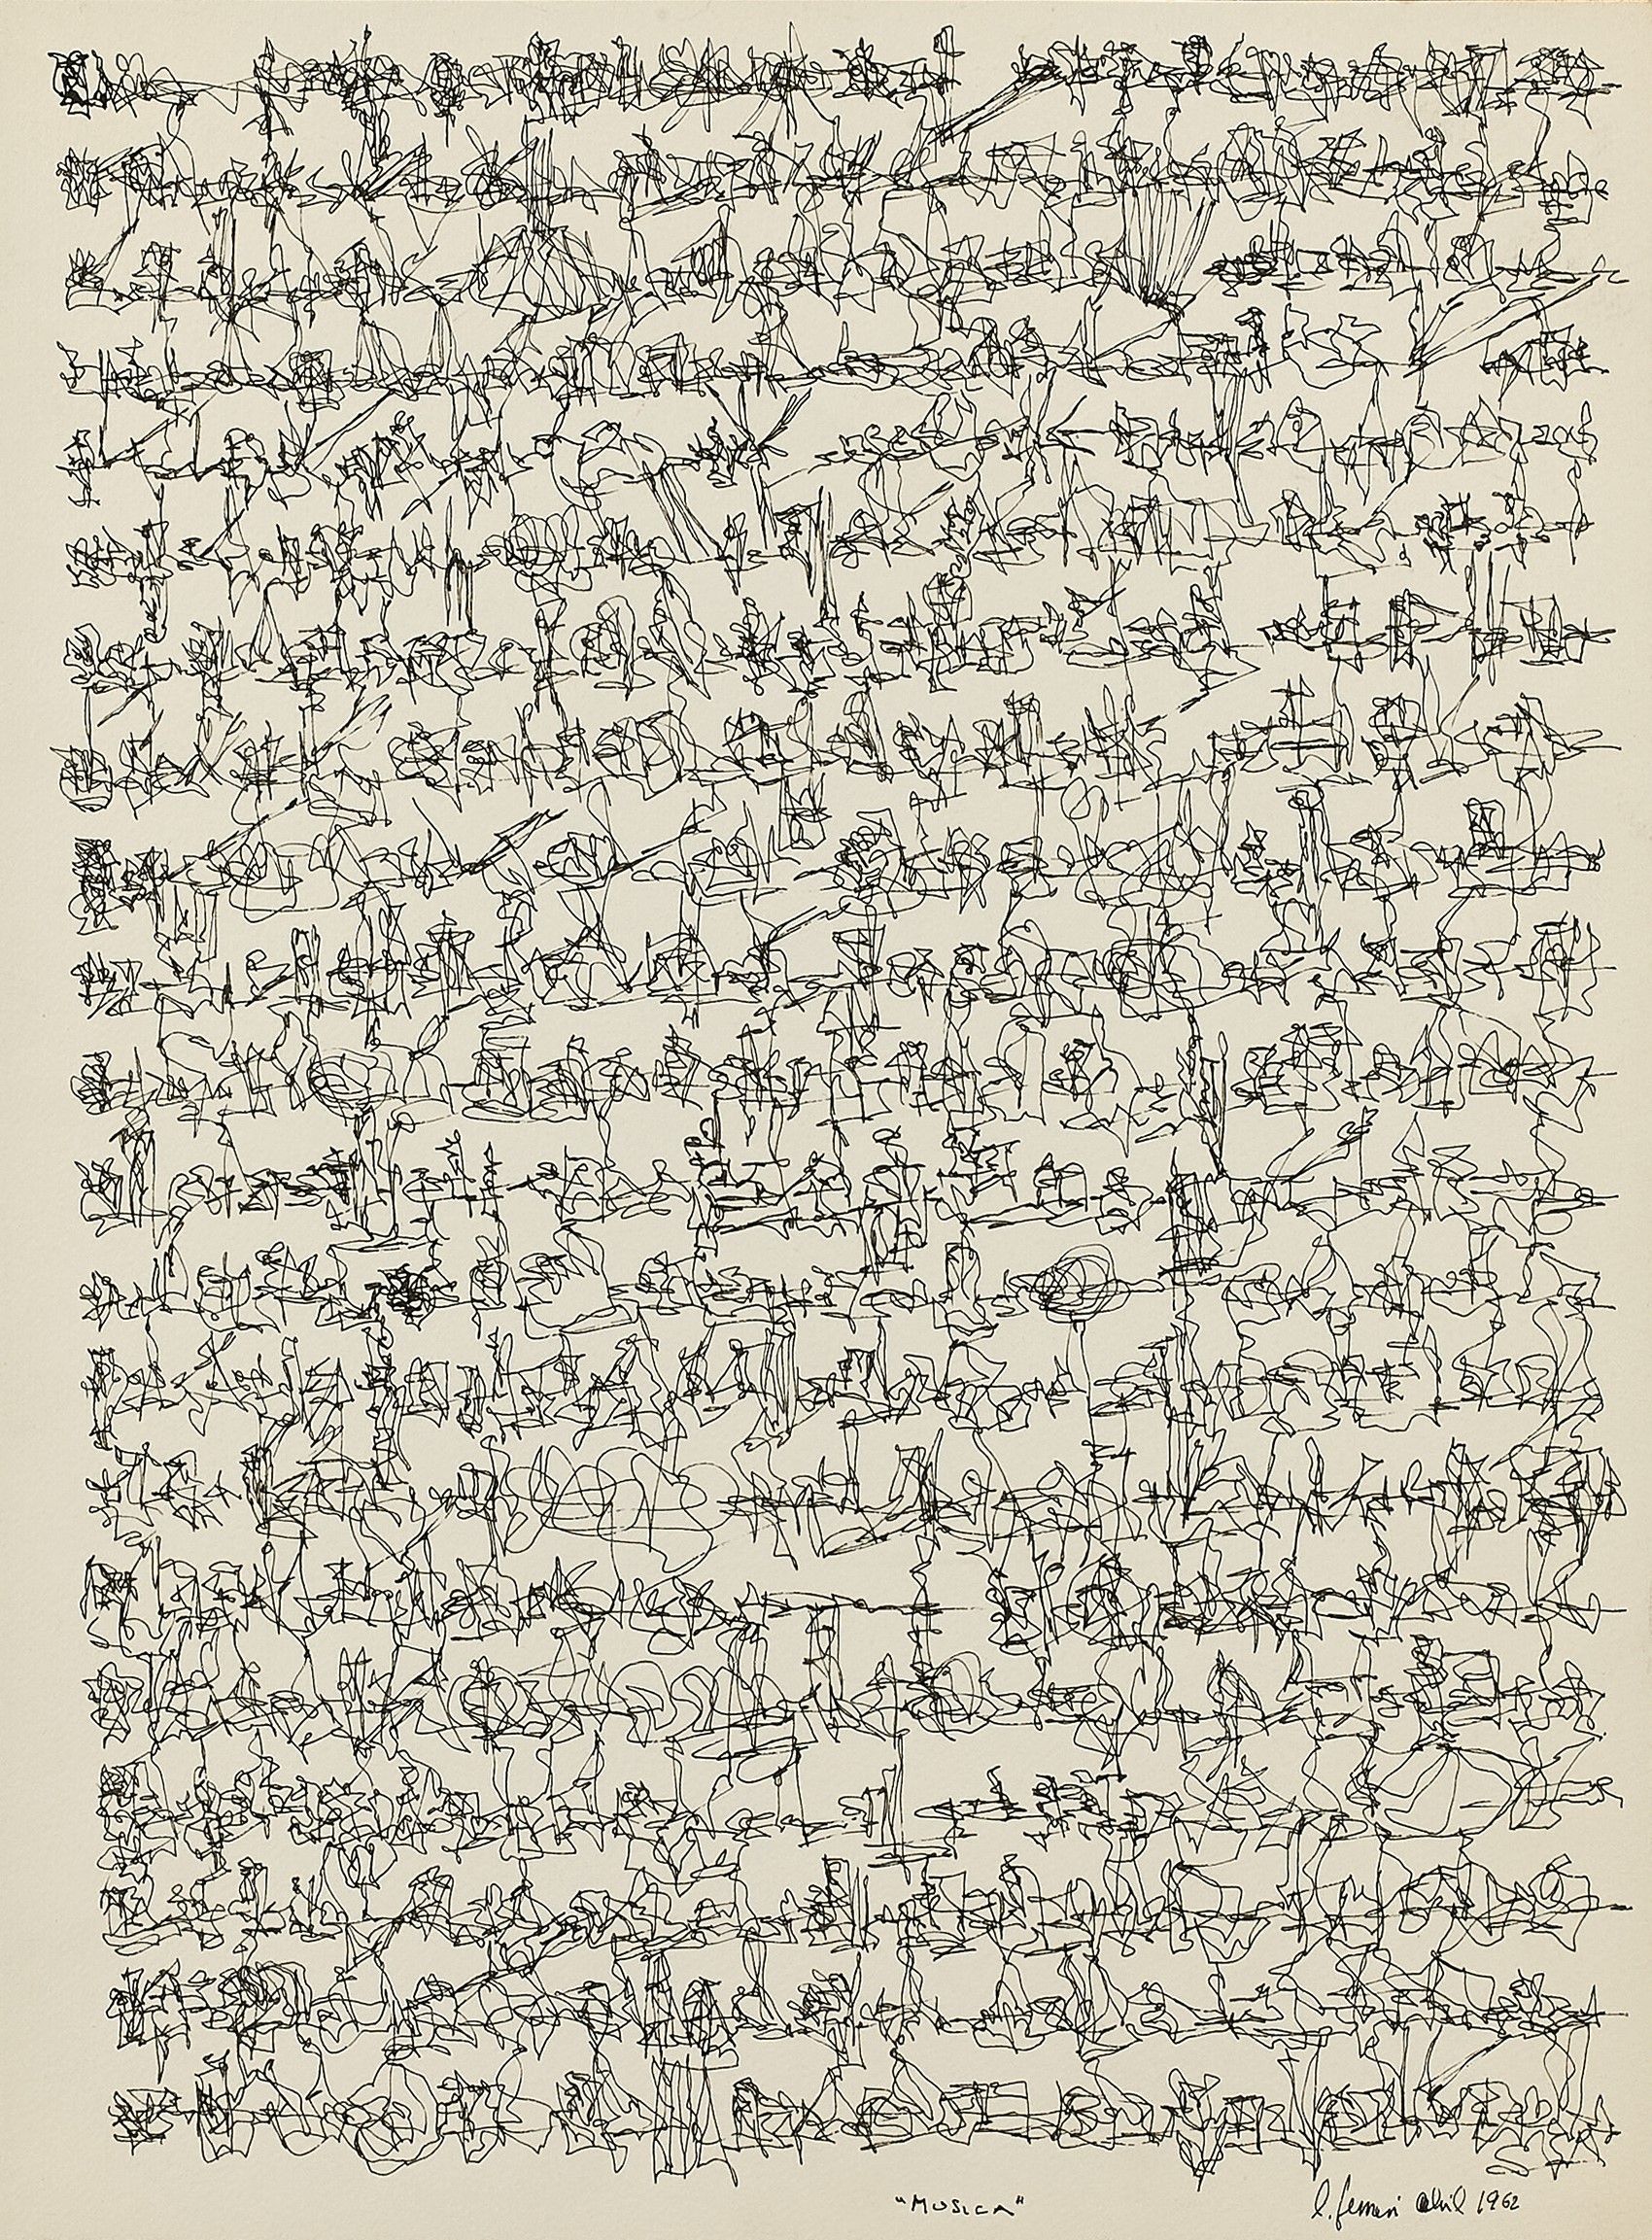 "MUSICA"
l. ferrari abril 1962